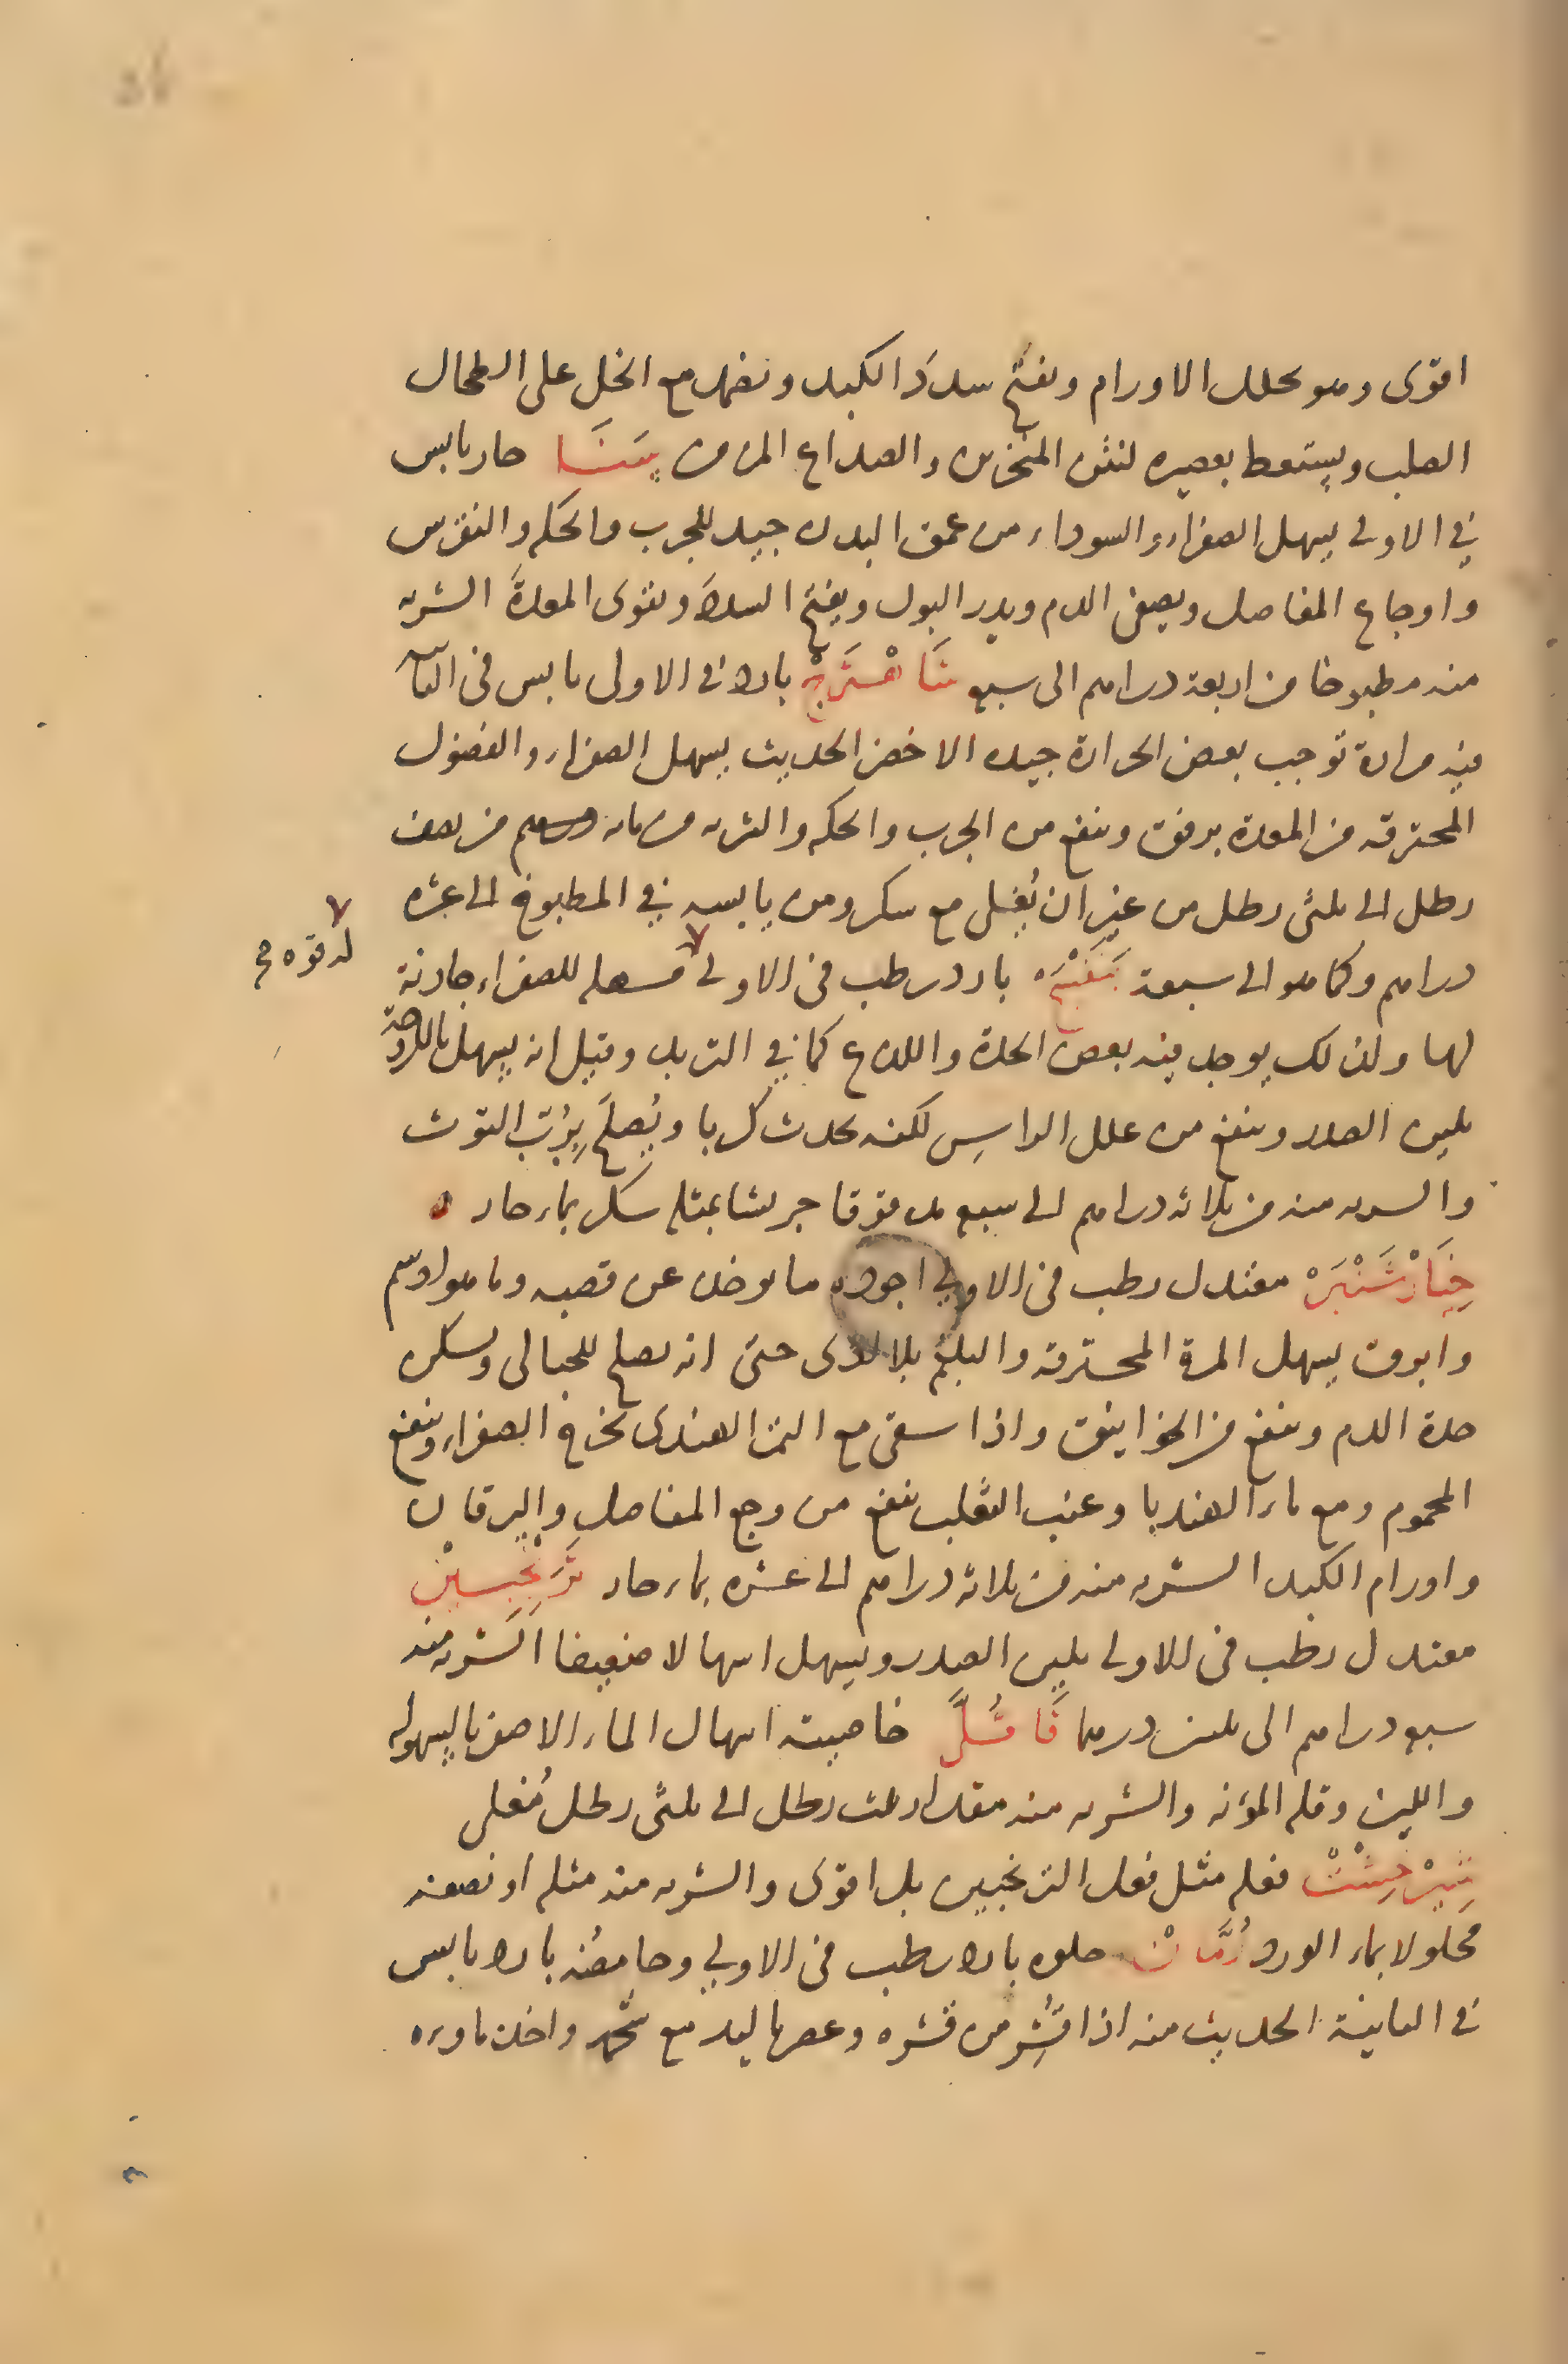 اقوى وهو يحلل الاورام ويفتح سدد الكبد ويضمد مع الخل على الطحال
الصلب ويستعط بعصيره لنتن المنخرين والصداع المزمن سَنَا حار يابس
في الاولى يسهل الصفراء والسوداء من عمق البدن جيد للجرب والحكه والنقرس
واوجاع المفاصل ويصفى الدم ويدر البول ويفتح السدد ويقوى المعدة الشربه
منه مطبوخا من اربعة دراهم الى سبعه شَاهْتَرَجْ بارد في الاولى يابس في الثانيه
فيه مرارة توجب بعض الحرارة جيده الاخضر الحديث يسهل الصفراء والفضول
المحترقه من المعدة برفق وينفع من الجرب والحكه والشربه من مائه من نصف
رطل الى ثلثى رطل من غير ان يُغلى مع سكر ومن يابسه في المطبوخ الى عشره
دراهم وكما هو الى سبعة بَنَفْسَج بارد رطب في الاولى مسهله للصفراء جاذبة
له قوه م
لها ولذلك يوجد فيه بعض الحدة واللذع كما في التربد وقيل انه يسهل باللزوجة
يلين الصدر وينفع من علل الراس لكنه يحدث كربا ويُصلَح بِرُبّ التوت
والشربه منه من ثلاثه دراهم الى سبعه مدقوقا جريشا بمثله سكر بماء حار
خِيَارْشَنْبَرْ معتدل رطب في الاولى اجوده ما يوخذ عن قصبه وما هو ادسم
وابرق يسهل المرة المحترقه والبلغم بلا اذى حتى انه يصلح للحبالى ويسكن
حدة الدم وينفع من الخوانيق واذا سقى مع التمر الهندى يخرج الصفراء وينفع
المحموم ومع ماء الهندبا وعنب الثعلب ينفع من وجع المفاصل واليرقان
واورام الكبد الشربه منه من ثلاثه دراهم الى عشره بماء حار تَرَنْجَبِينْ
معتدل رطب في الاولى يلين الصدر ويسهل اسهالا ضعيفا الشربه منه
سبعه دراهم الى ثلثين درهما خاصيته اسهال الماء الاصفر بالسهوله
واللين وقله المؤنه والشربه منه مقدار ثلث رطل الى ثلثى رطل مُغلى
شِيرْخِشْتْ فعله مثل فعل الترنجبين بل اقوى والشربه منه مثله او نصفه
محلولا بماء الورد رُمَّانْ حلوه بارد رطب في الاولى وحامضُه بارد يابس
في الثانية الحديث منه اذا قُشِر من قشره وعصر باليد مع شحمه واخذ ماوءه